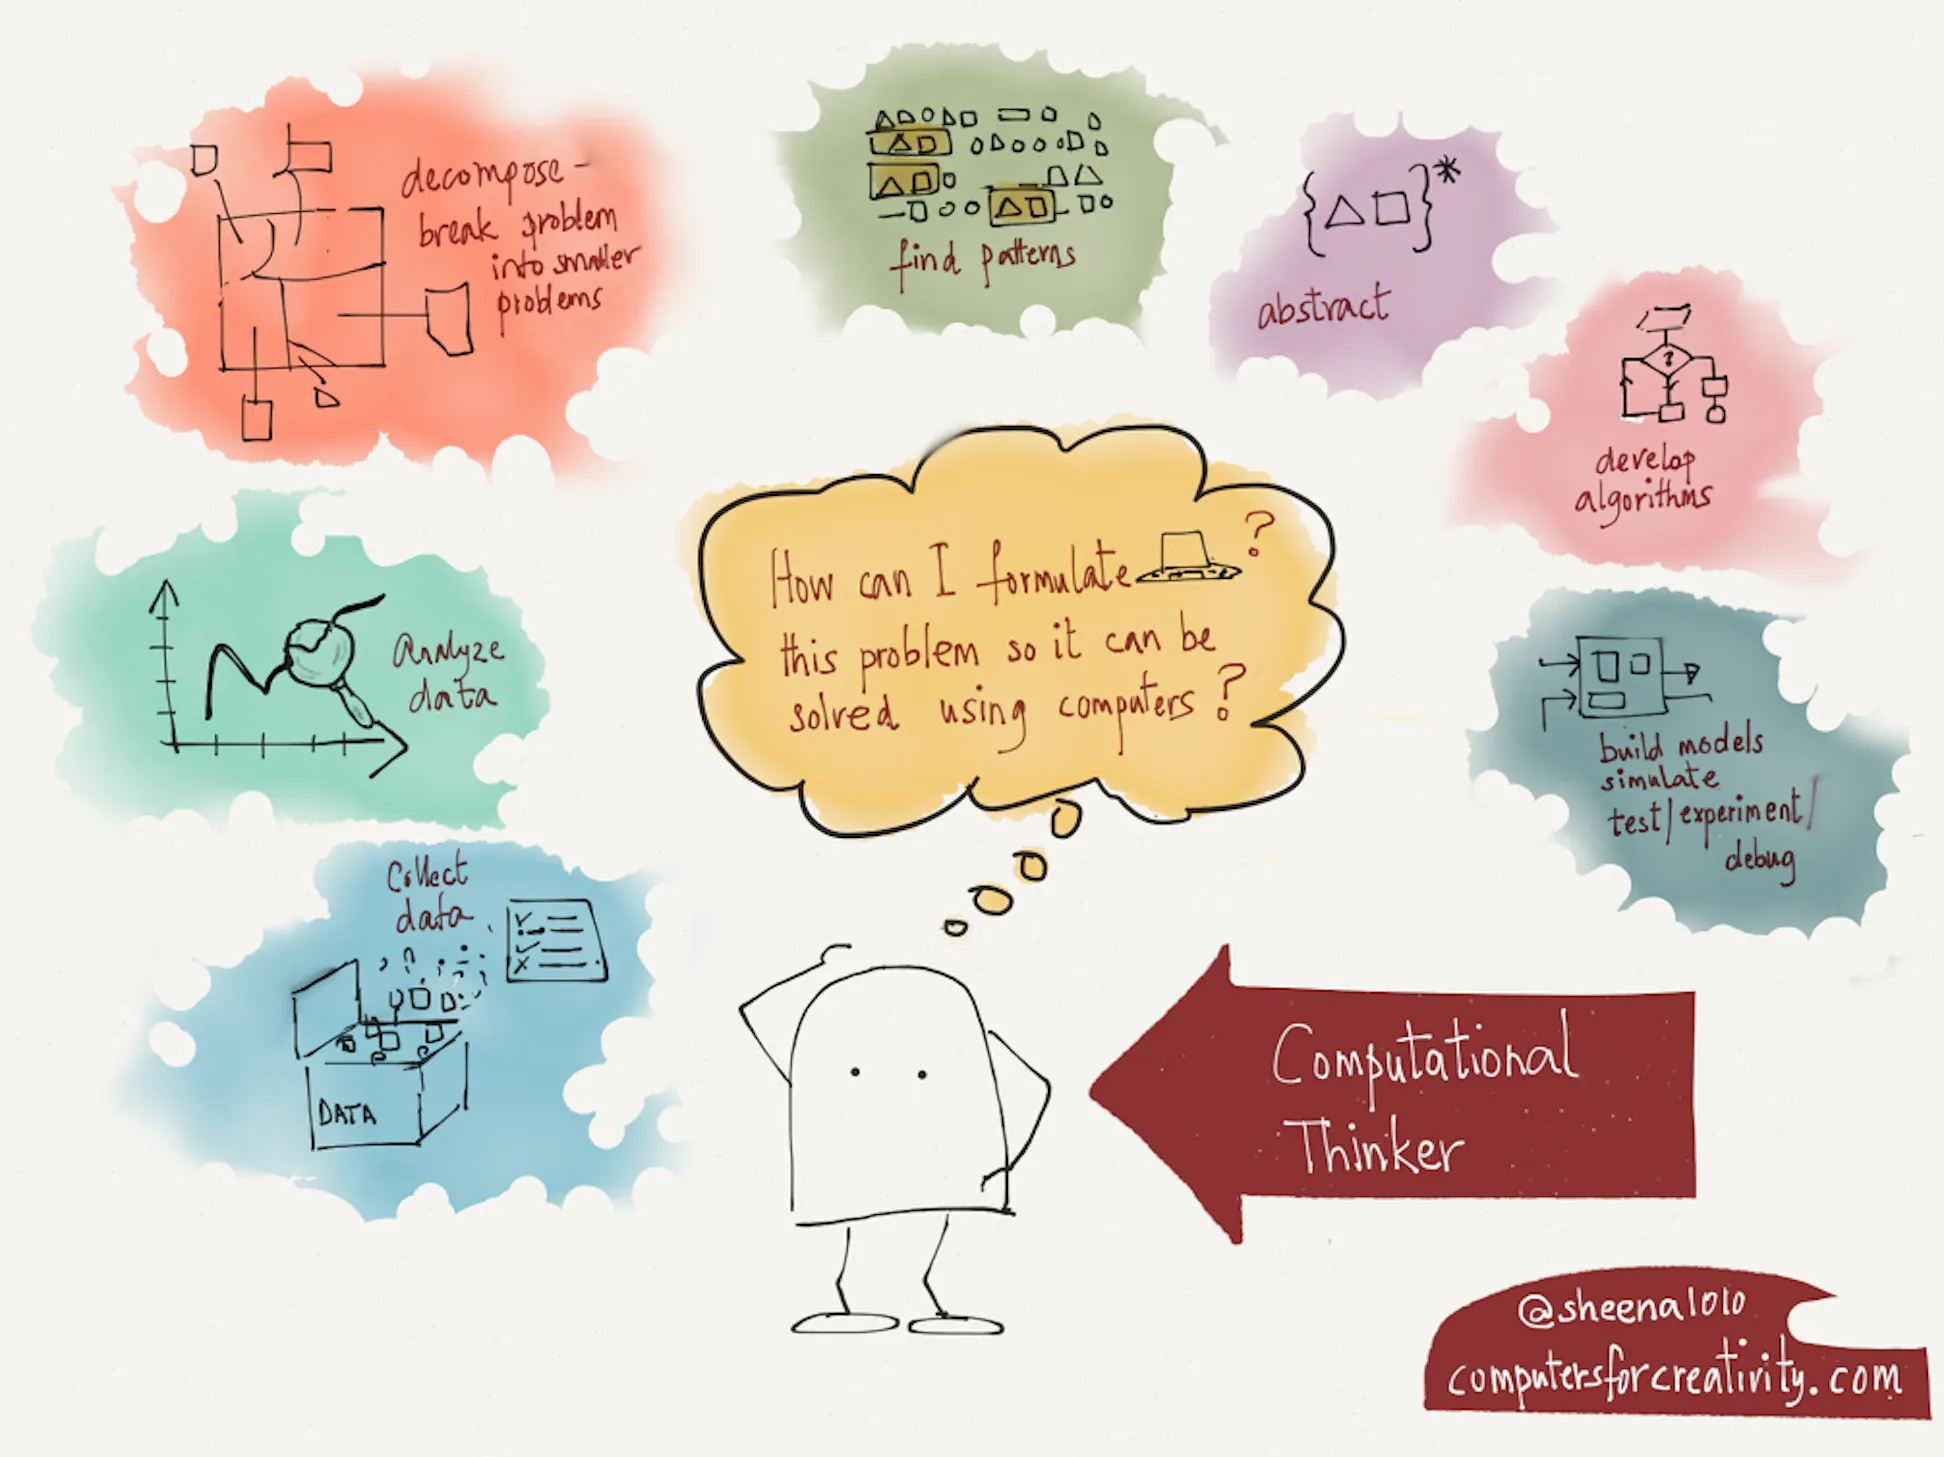 decompose -
break problem
into smaller
problems
find patterns
{ }*
abstract
?
develop
algorithms
Analyze
data
How can I formulate ?
this problem so it can be
solved using computers ?
build models
simulate
test/experiment/
debug
Collect
data
DATA
Computational
Thinker
@sheena1010
computersforcreativity.com